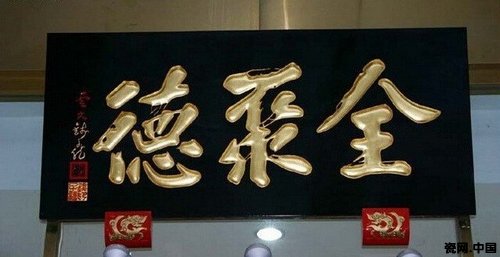 全聚德
瓷网.中国